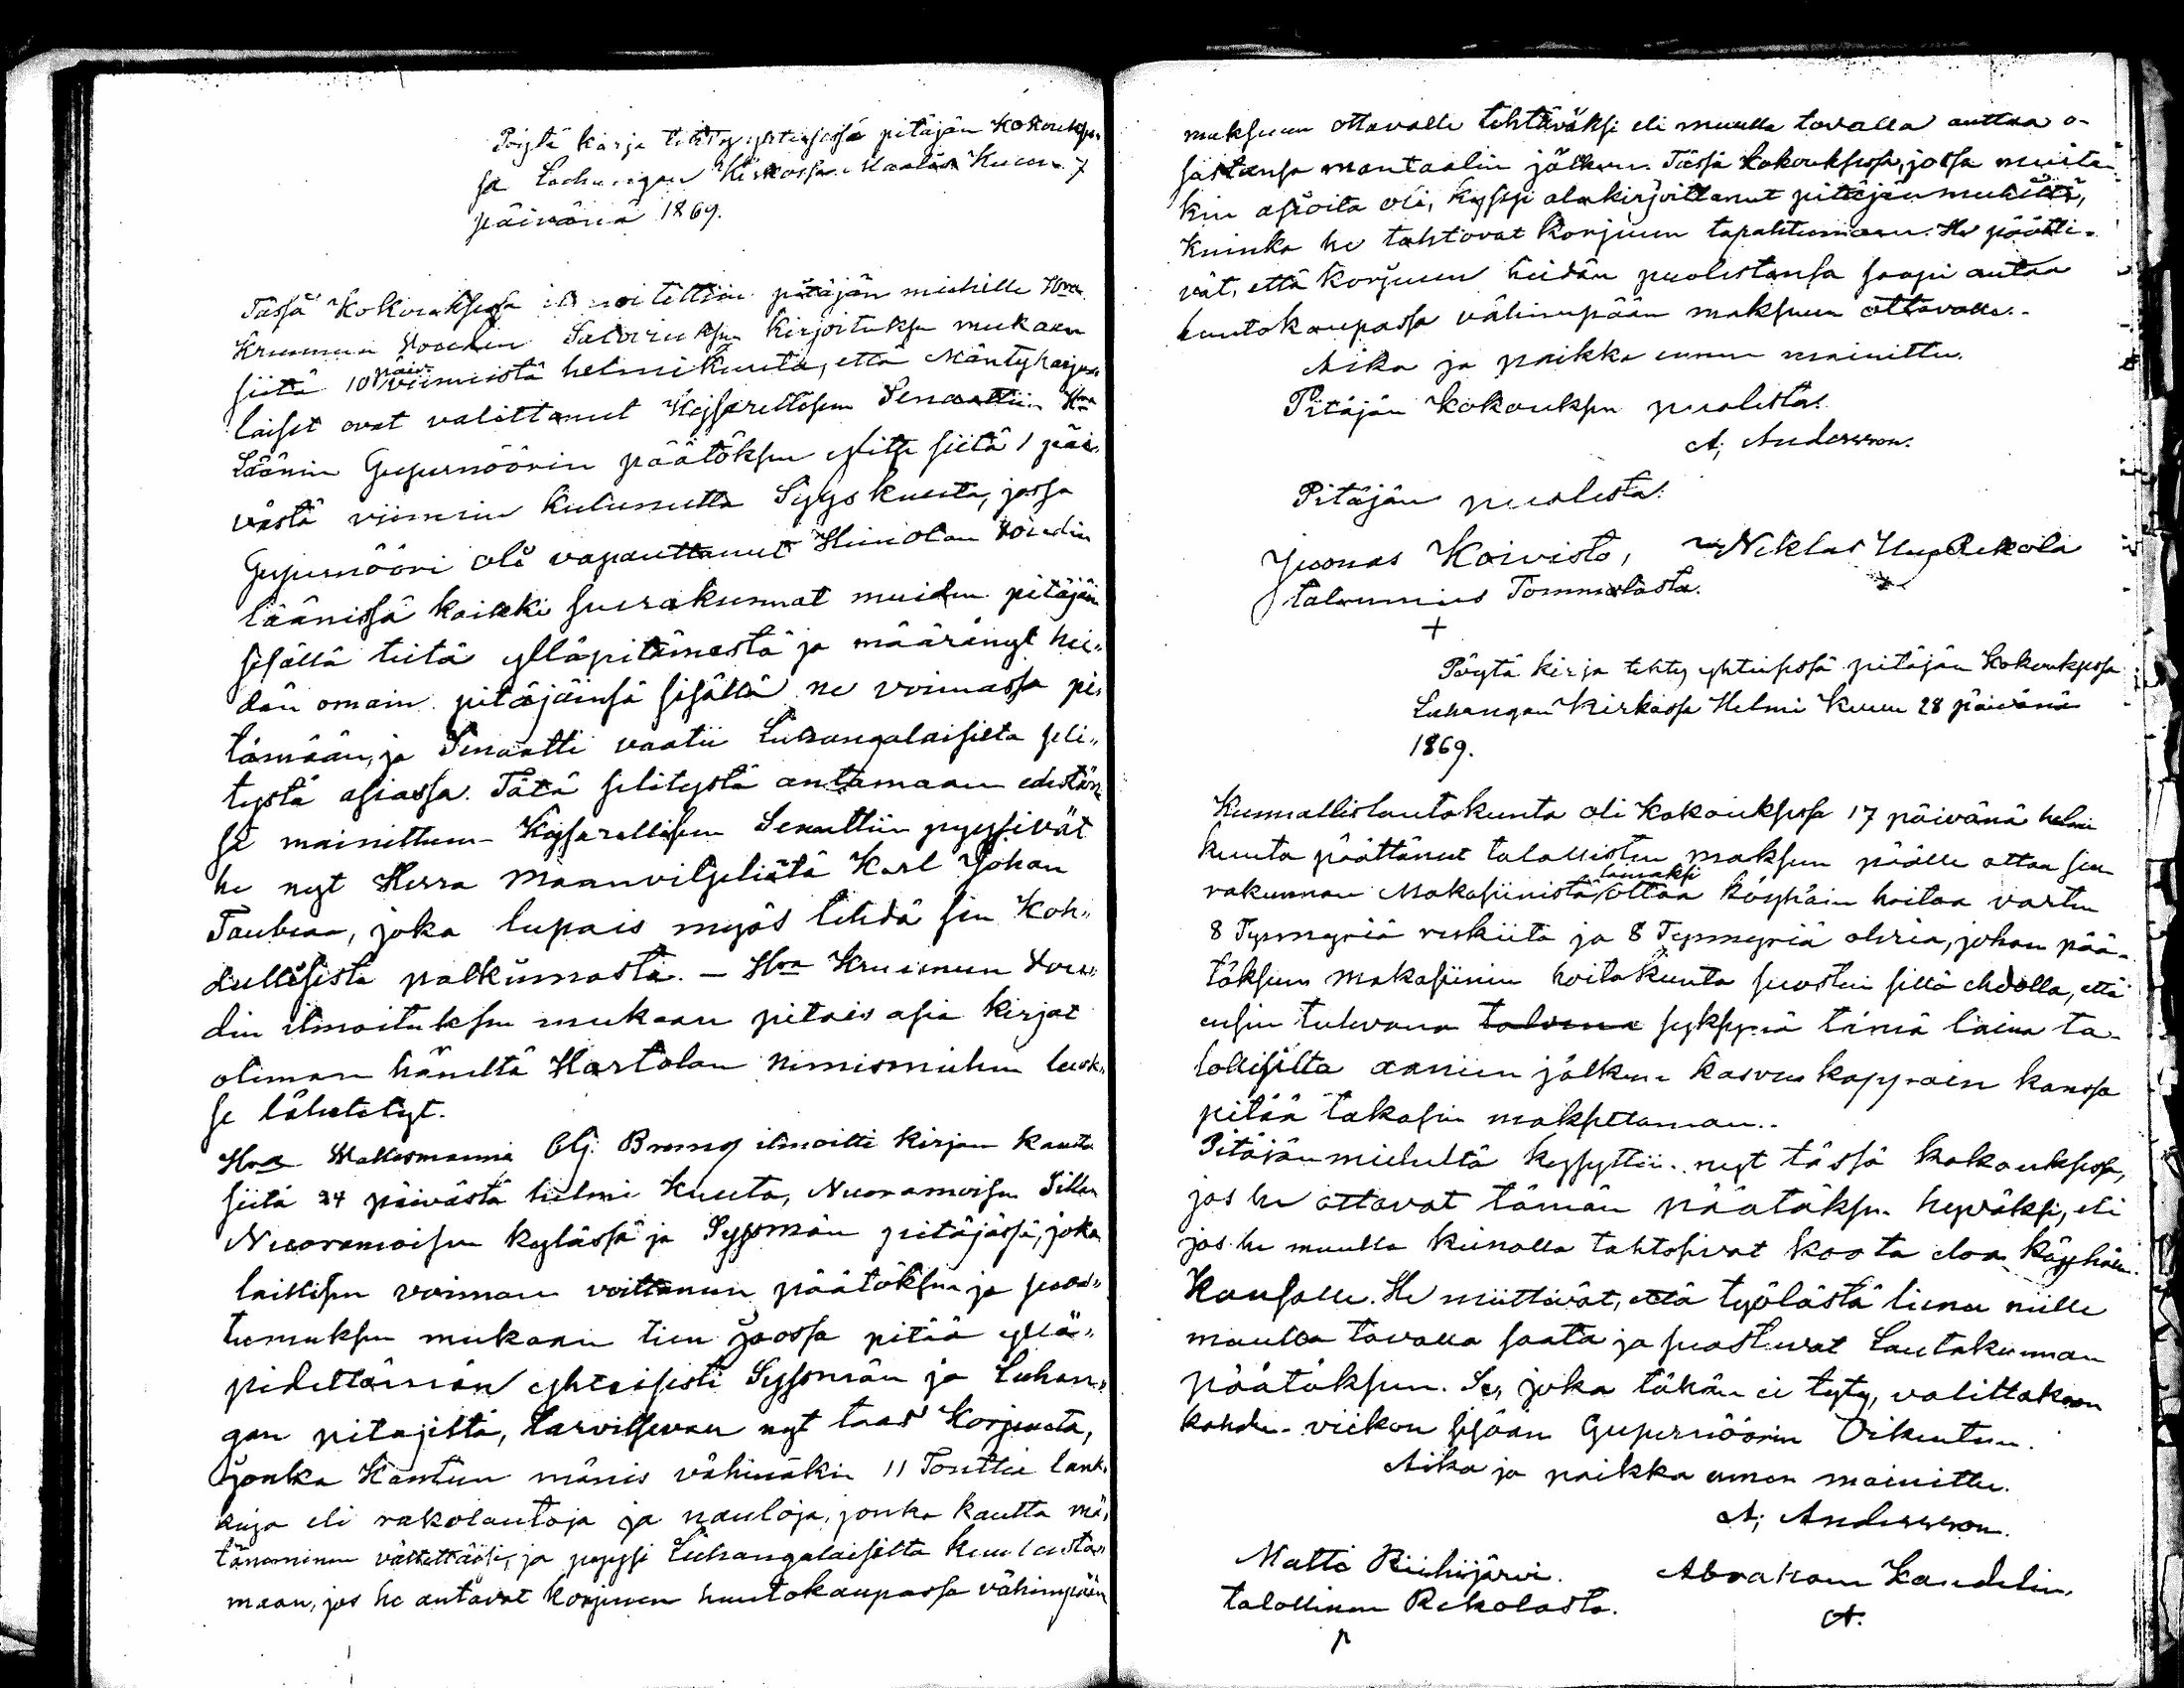 Pöytä kirja tehty yhteisessä pitäjän Kokoukses-
sa Luhangan Kirkossa Maalis Kuun 7
päivänä 1869.
Tässä Kokouksessa ilmoitettiin pitäjän miehille Hrra
Kruunun Voudin kirjoituksen mukaan
siitä 10 päiv. viimeistä helmikuuta, että Mäntyharju-
laiset ovat valittanut Keisarillisen Senaattiin Hrra
Läänin Gupernöörin päätöksen ylitse siitä 1 päi-
västä viimein kulunutta Syyskuuta, jossa
Gupernööri oli vapauttanut Heinolan voudin
läänissä kaikki seurakunnat muiden pitäjän
sisällä teitä ylläpitämästä ja määrännyt hei-
dän omain pitäjäinsä sisällä ne voimassa pi-
tämään, ja Senaatti vaatii Luhangalaisilta seli-
tystä asiassa. Tätä selitystä antamaan edestän-
sä mainittuun Keisarillisen Senaattiin pyysivät
he nyt Herra Maanviljeliätä Karl Johan
Taubea, joka lupais myös tehdä sen koh-
dullisesta palkinnosta. – Hrra Kruunun Vou-
din ilmoituksen mukaan pitäis asia kirjat
oleman häneltä Hartolan nimismiehen luok-
se lähetetyt.
Hrra Wallesmanni Olj. Bromg ilmoitti kirjan kautta
siitä 24 päivästä helmi Kuuta, Nuoramoisen Sillan
Nuoramoisen kylässä ja Sysmän pitäjässä, joka
laillisen voiman voittanun päätöksen ja suos-
tumuksen mukaan tien jaossa pitää yllä-
pidettämän yhteisesti Sysmän ja Luhan-
gan pitäjiltä, tarvitsevan nyt taas Korjuuta,
jonka Kantuu mänis vähinäkin 11 Tolttia lank-
kuja eli rakolautoja ja nauloja, jonka kautta mä-
täneminen vältettäisi, ja pyysi Luhangalaisilta kuulusta-
maan, jos he antavat korjuun huutokaupassa vähimpään
maksuun ottavalle tehtäväksi eli muulla tavalla auttaa o-
sastansa mantaalin jälkeen. Tässä kokouksessa, jossa muita-
kin asioita oli, kysyi alakirjoittanut pitäjänmiehiltä,
kuinka he tahtovat korjuun tapahtumaan. He päätti-
vät, että korjuun heidän puolestansa saapi antaa
huutokaupassa vähimpään maksuun ottavalle.
Aika ja paikka ennen mainittu.
Pitäjän Kokouksen puolesta:
A. Andersson.
Pitäjän puolesta:
Juonas Koivisto, Neklas Uusi Rekola
talonmies Tommolasta.
+
Pöytä kirja tehty yhteisessä pitäjän Kokouksessa
Luhangan Kirkossa Helmi Kuun 28 päivänä
1869.
Kunnallislautakunta oli Kokouksessa 17 päivänä helmi
kuuta päättänut talollisten maksun päälle ottaa seu-
rakunnan Makasiinista lainaksi ottaa köyhäin hoitoa varten
8 Tynnyriä rukiita ja 8 Tynnyriä ohria, johon pää-
töksen makasiinin hoitokunta suostui sillä ehdolla, että
ensin tulevana talvena syksynä tämä laina ta-
lollisilta äänien jälkeen kasvun kappain kanssa
pitää takasin maksettaman.
Pitäjänmieheltä kysyttiin nyt tässä kokouksessa,
jos he ottavat tämän päätöksen hyväksi, eli
jos he muulla keinolla tahtosivat koota eloa köyhäin
Kansalle. He miettivät, että työlästä lienee niille
muulla tavalla saata ja suostuvat Lautakunnan
päätöksen. Se, joka tähän ei tyty, valittakoon
kahden viikon sisään Gupernöörin Oikeuteen.
Aika ja paikka ennen mainittu.
A. Andersson.
Matti Riihijärvi. Abraham Kandelin,
talollinen Rekolasta. A.